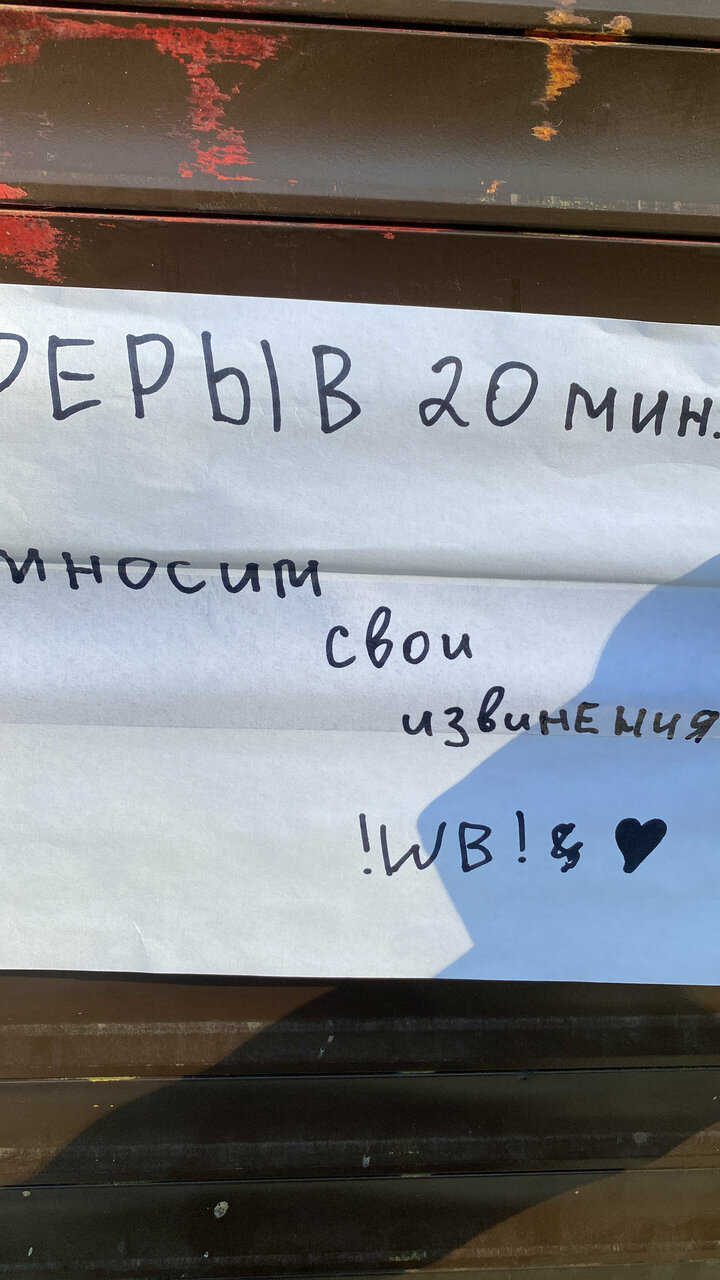 РЕРЫВ 20 мин.
иносим
свои
извинения
!WB! & ♥